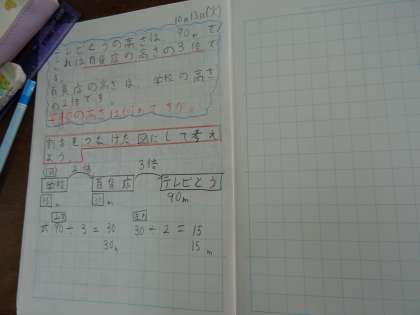 10月13日(火)
テレビとうの高さは、90mで
これは百貨店の高さの3倍で
す。
百貨店の高さは、学校の高さ
の2倍です。
学校の高さは何mですか。
わをつなげた図にして考え
よう。
2倍 3倍
学校 百貨店 テレビとう
m m 90m
90÷3=30 30÷2=15
30m 15m